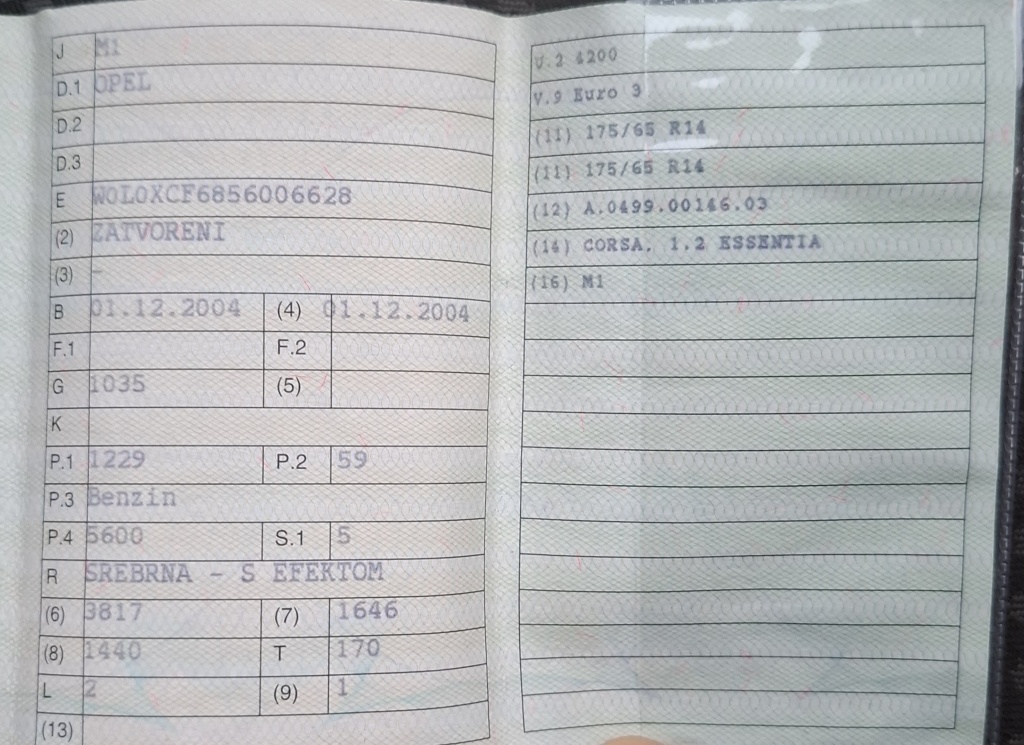 J M1
D.1 OPEL
D.2
D.3
E W0L0XCF6856006628
(2) ZATVORENI
(3) -
B 01.12.2004 (4) 01.12.2004
F.1 F.2
G 1035 (5)
K
P.1 1229 P.2 59
P.3 Benzin
P.4 5600 S.1 5
R SREBRNA - S EFEKTOM
(6) 3817 (7) 1646
(8) 1440 T 170
L 2 (9) 1
(13)
U.2 4200
V.9 Euro 3
(11) 175/65 R14
(11) 175/65 R14
(12) A.0499.00146.03
(14) CORSA, 1.2 ESSENTIA
(16) M1